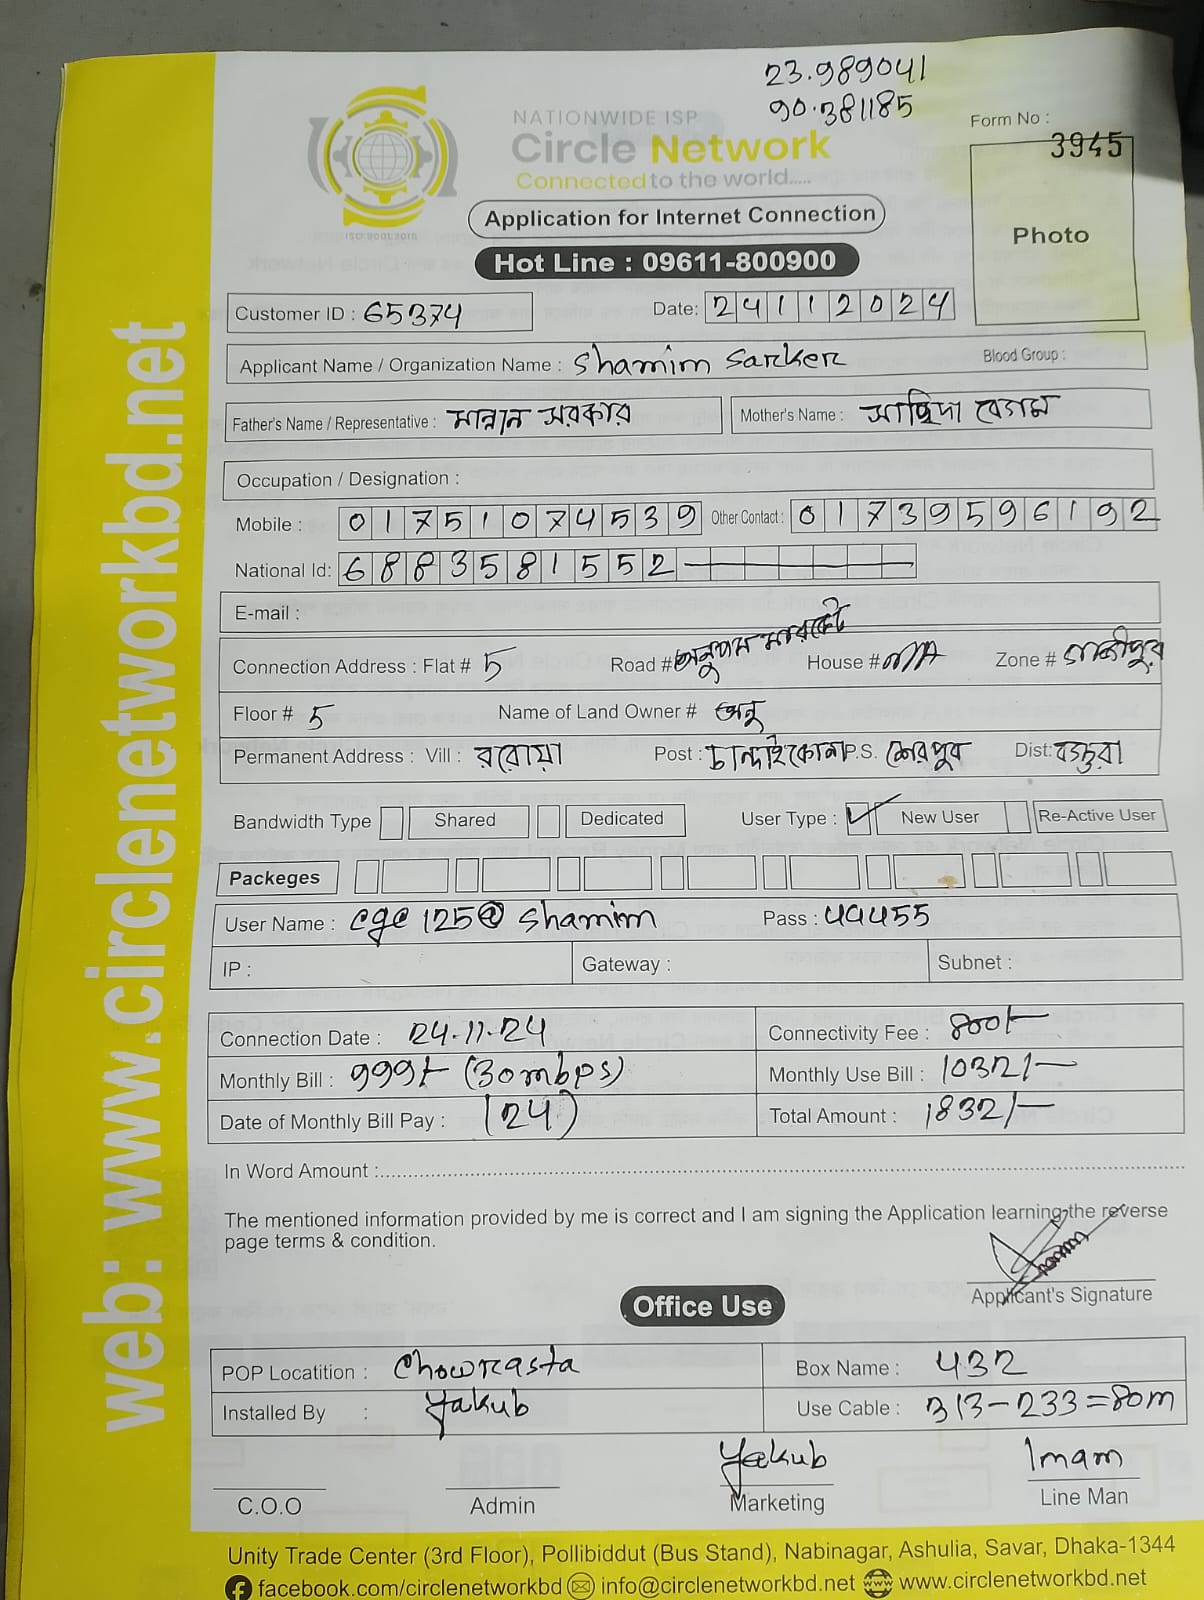 23.989041
90.381185
NATIONWIDE ISP
Circle Network
Connected to the world.....
ISO 9001:2015
Form No :
3945
Photo
Application for Internet Connection
Hot Line : 09611-800900
Customer ID : 65374 Date: 24112024
Applicant Name / Organization Name : Shamim Sarker Blood Group :
Father's Name / Representative : মান্নান সরকার Mother's Name : সাহিদা বেগম
Occupation / Designation :
Mobile : 01751074539 Other Contact : 01739596192
National Id: 6883581552
E-mail :
Connection Address : Flat # 5 Road # অনুপম মারকেট House # N/A Zone # গাজীপুর
Floor # 5 Name of Land Owner # অনু
Permanent Address : Vill : বরোয়া Post : চান্দাইকোনা P.S. শেরপুর Dist: বগুরা
Bandwidth Type Shared Dedicated User Type : ✓ New User Re-Active User
Packeges
User Name : cgc125@shamim Pass : 44455
IP : Gateway : Subnet :
Connection Date : 24-11-24 Connectivity Fee : 800/-
Monthly Bill : 999/- (30mbps) Monthly Use Bill : 1032/-
Date of Monthly Bill Pay : (24) Total Amount : 1832/-
In Word Amount :
The mentioned information provided by me is correct and I am signing the Application learning the reverse
page terms & condition.
Applicant's Signature
Office Use
POP Locatition : Chowrasta Box Name : 432
Installed By : Yakub Use Cable : 313-233=80m
Yakub Imam
C.O.O Admin Marketing Line Man
Unity Trade Center (3rd Floor), Pollibiddut (Bus Stand), Nabinagar, Ashulia, Savar, Dhaka-1344
facebook.com/circlenetworkbd info@circlenetworkbd.net www.circlenetworkbd.net
web: www.circlenetworkbd.net